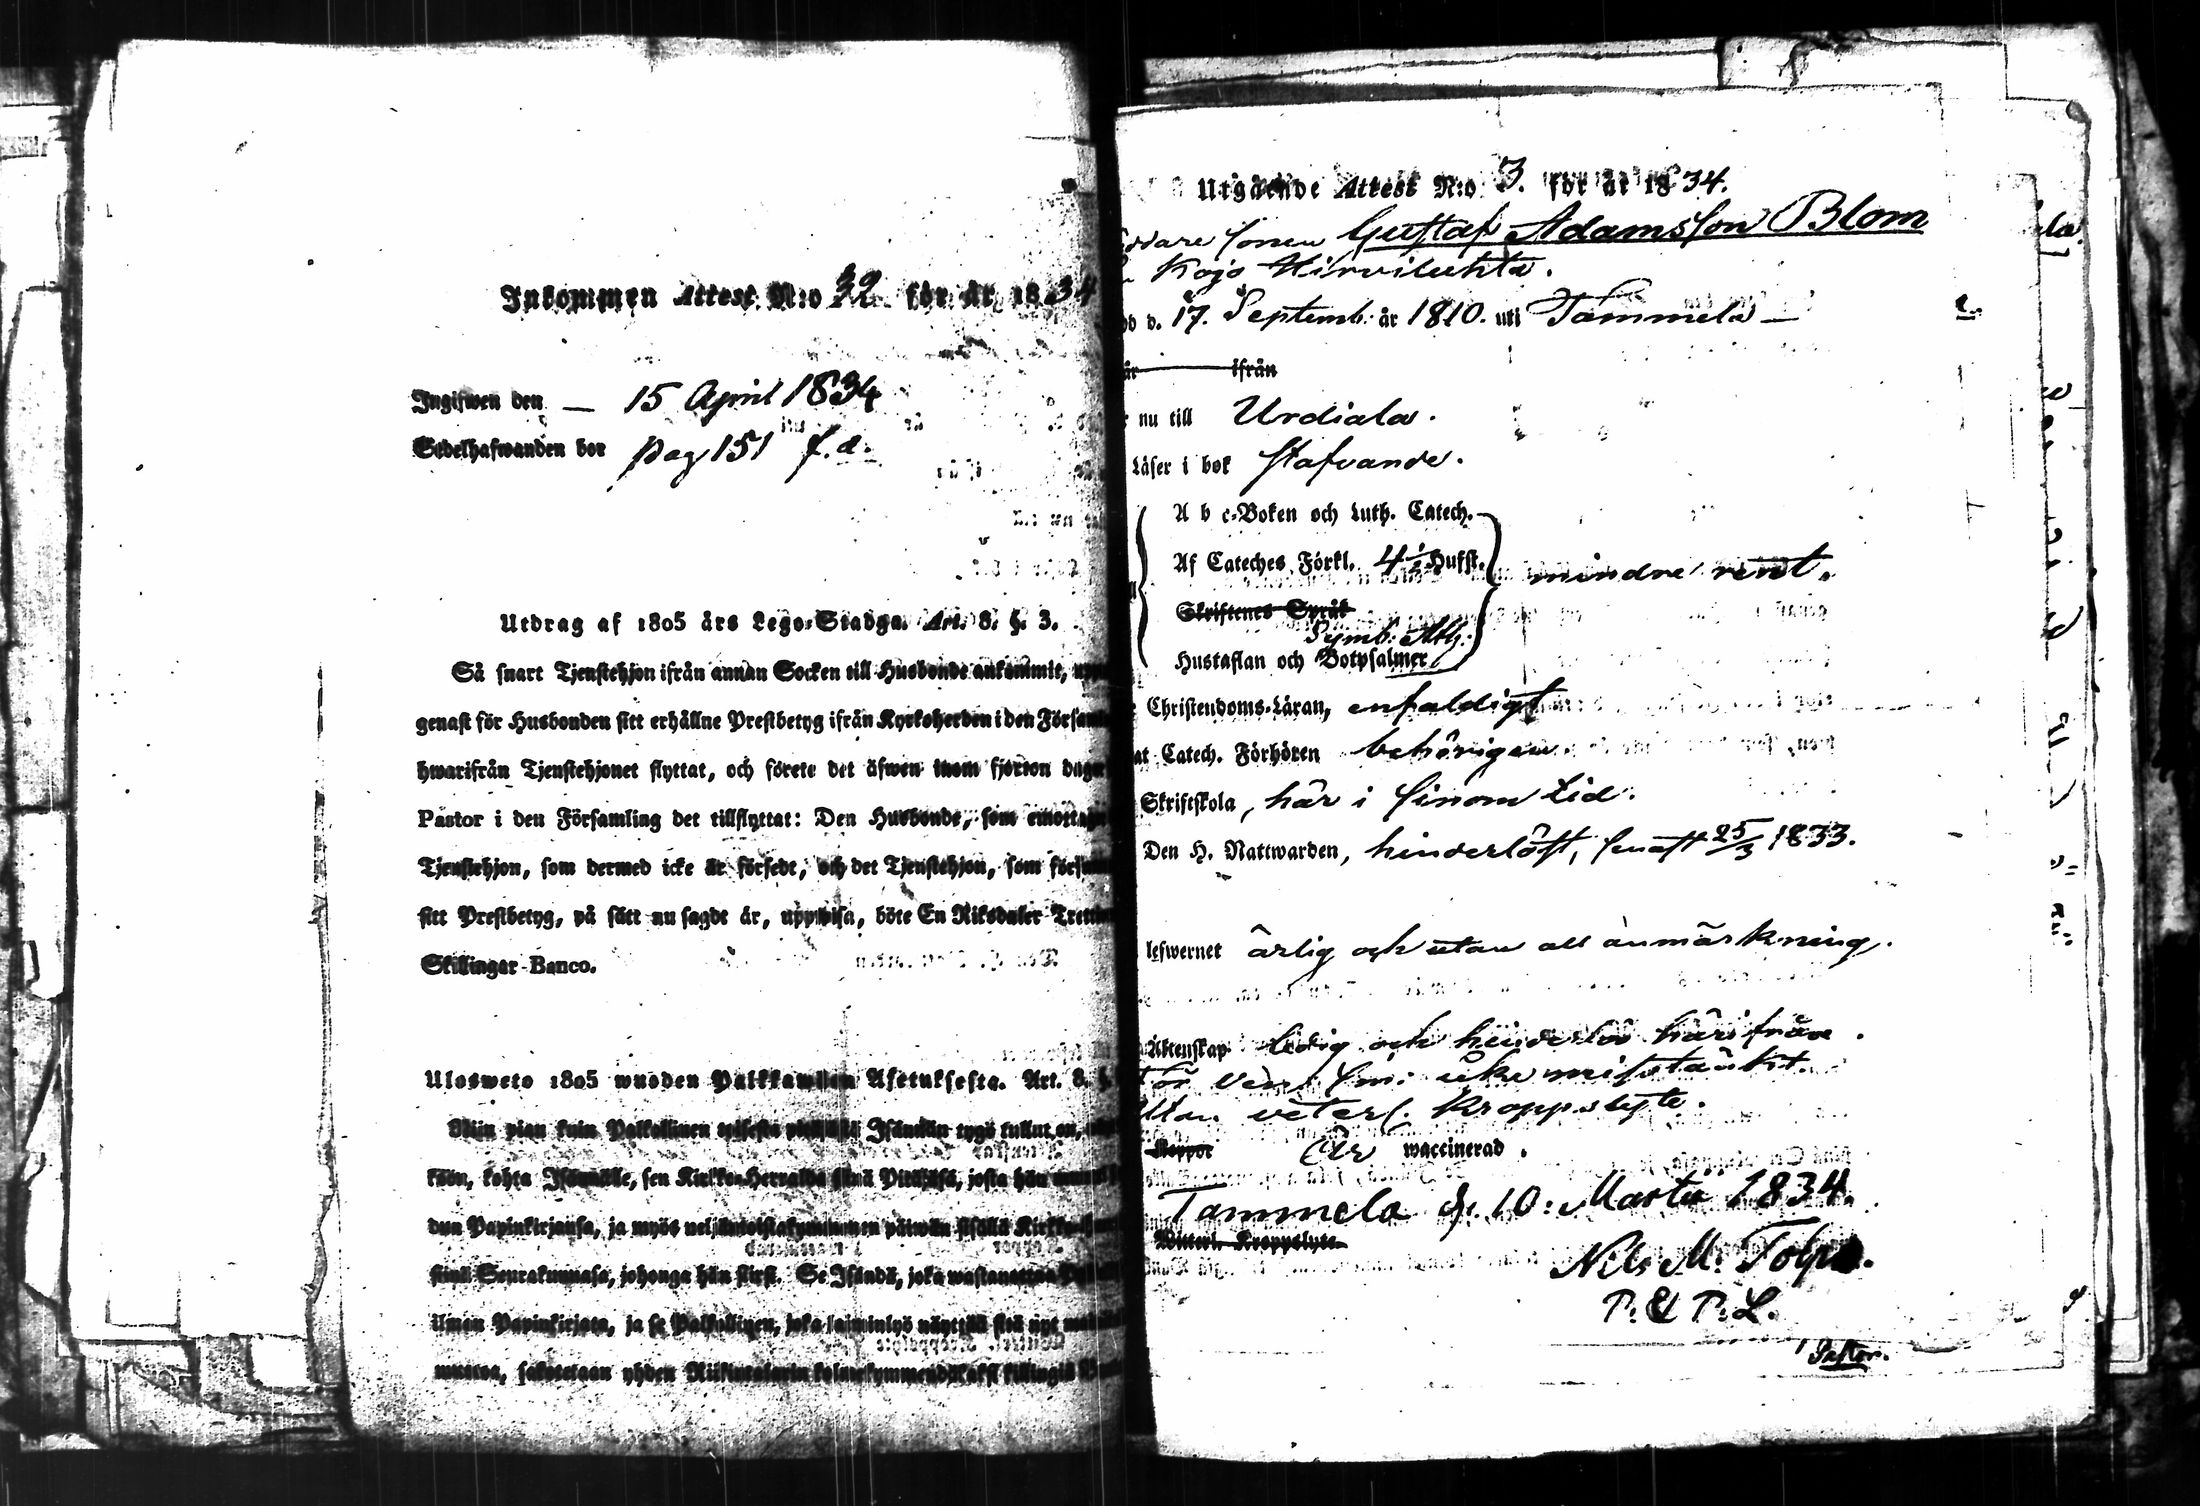 Inkommen Attest N:o 32 för år 1834
Ingifwen den — 15 April 1834
Sedelhafwanden bor pag 151 f.d.
Utdrag af 1805 års Lego-Stadga. Art. 8. §. 3.
Så snart Tjenstehjon ifrån annan Socken till Husbonde ankommit,
genast för Husbonden sitt erhållne Prestbetyg ifrån Kyrkoherden i den
hwarifrån Tjenstehjonet flyttat, och förete det äfwen inom fjorton
Pastor i den Församling det tillflyttat: Den Husbonde, som
Tjenstehjon, som dermed icke är försedt, och det Tjenstehjon, som
sitt Prestbetyg, på sätt nu sagdt är, uppwisa, böte En Riksdaler
Skillingar Banco.
Ulosweto 1805 wuoden Palkkawäen Asetuksesta. Art. 8.
Niin pian kuin Palkollinen Isännän tygö tullut on,
kohta Isännälle, sen Kirkko-Herralda siinä Pitäjäsä, josta hän
Papinkirjansa, ja myös neljäntoistakymmenen päiwän sisällä
siinä Seurakunnasa, johonga hän siirsi. Se Isändä, joka
ilman Papinkirjata, ja se Palkollinen, joka laiminlyö näyttää sitä nyt
sakotetaan yhden Riikintalarin
Utgående Attest N:o 3. för år 1834.
sonen Gustaf Adamsson Blom
Kojo Hirviluhta.
d. 17. Septemb. år 1810. uti Tammela —
ifrån
nu till Urdiala.
Läser i bok stafvande.
A b c-Boken och Luth. Catech.
Af Cateches Förkl. 4 1/2 Hufst. mindre rent.
Skriftenes Språk
Symb: Ath:
Hustaflan och Botpsalmer
Christendoms-Läran, enfaldigt
Catech. Förhören behörigen
Skriftskola, här i sinom tid.
Den H. Nattwarden, hinderlöst, senast 25/3 1833.
lefwernet ärlig och utan all anmärkning.
Äktenskap ledig och hinderlös härifrån.
för ven: smi: icke misstänkt.
Utan veterl. Kroppslyte.
Koppor Är waccinerad.
Tammela d. 10: Martii 1834.
Witterl. Kroppslyte
Nils M. Tolpo.
P: & P: L.
Pastor.